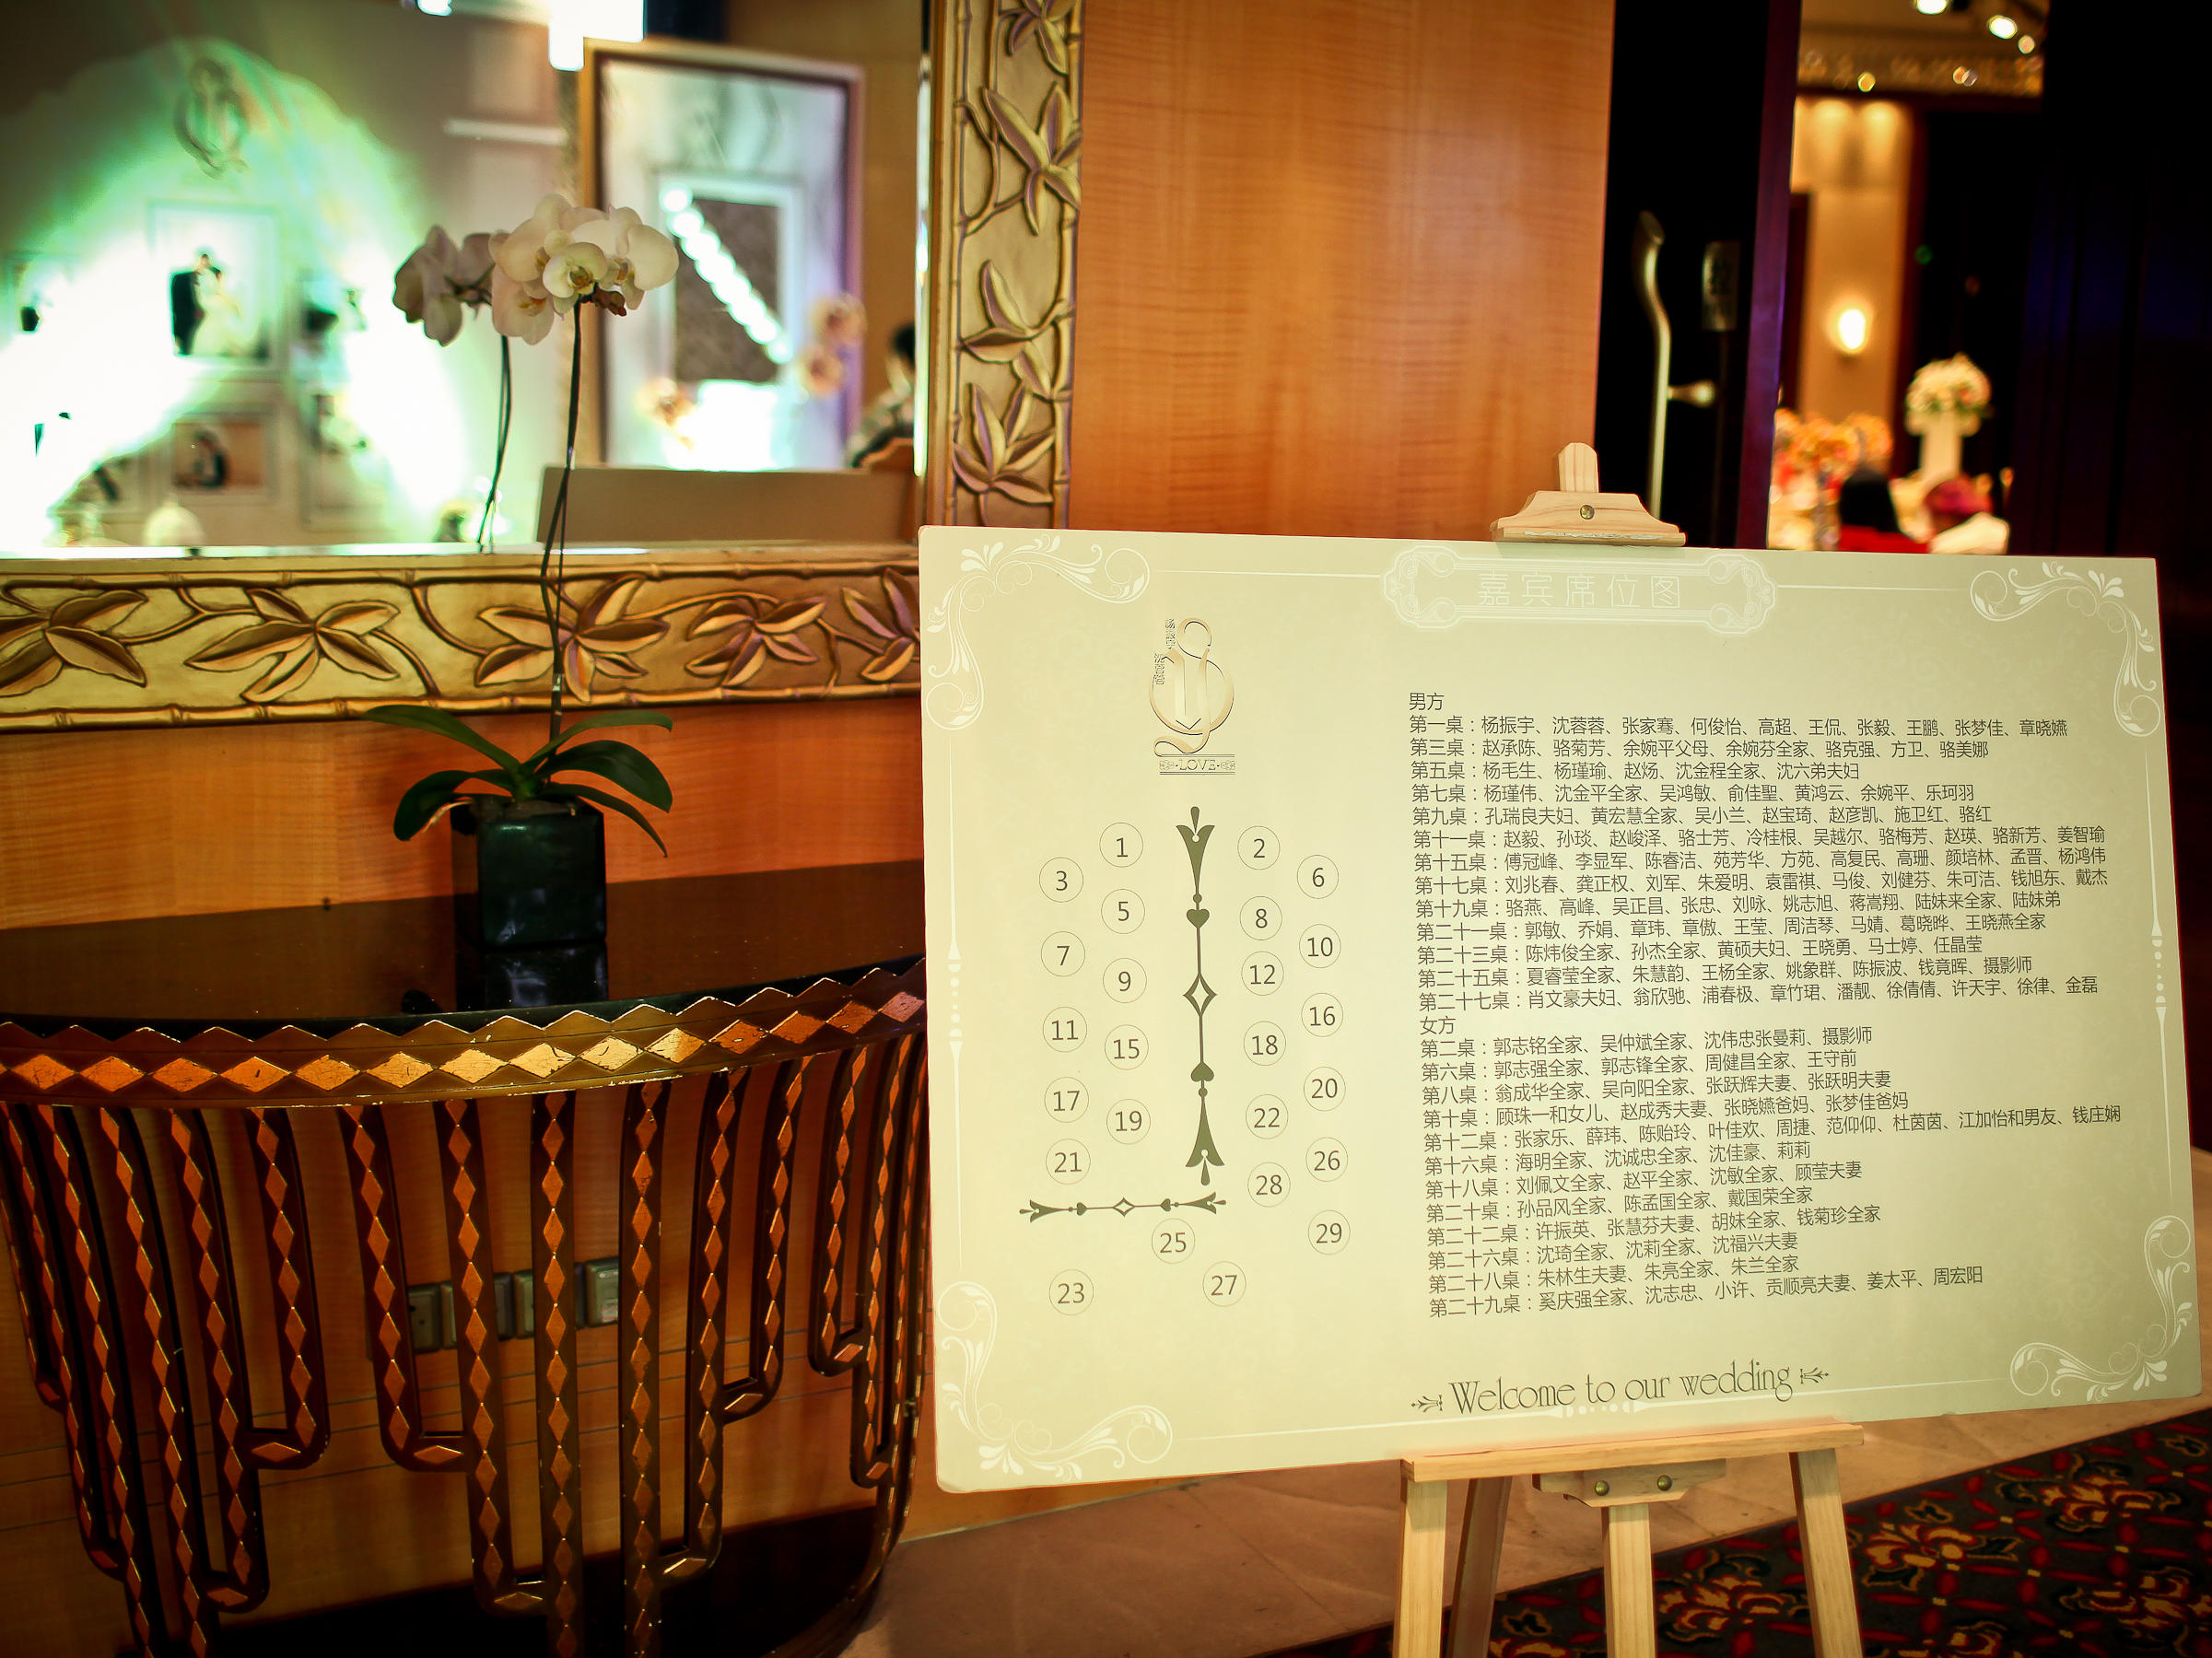 嘉宾席位图
LOVE
1
2
3
6
5
8
7
10
9
12
11
16
15
18
17
20
19
22
21
26
28
25
29
23
27
男方
第一桌：杨振宇、沈蓉蓉、张家骞、何俊怡、高超、王侃、张毅、王鹏、张梦佳、章晓嬿
第三桌：赵承陈、骆菊芳、余婉平父母、余婉芬全家、骆克强、方卫、骆美娜
第五桌：杨毛生、杨瑾瑜、赵炀、沈金程全家、沈六弟夫妇
第七桌：杨瑾伟、沈金平全家、吴鸿敏、俞佳聖、黄鸿云、余婉平、乐珂羽
第九桌：孔瑞良夫妇、黄宏慧全家、吴小兰、赵宝琦、赵彦凯、施卫红、骆红
第十一桌：赵毅、孙琰、赵峻泽、骆士芳、冷桂根、吴越尔、骆梅芳、赵瑛、骆新芳、姜智瑜
第十五桌：傅冠峰、李显军、陈睿洁、苑芳华、方苑、高复民、高珊、颜培林、孟晋、杨鸿伟
第十七桌：刘兆春、龚正权、刘军、朱爱明、袁雷祺、马俊、刘健芬、朱可洁、钱旭东、戴杰
第十九桌：骆燕、高峰、吴正昌、张忠、刘咏、姚志旭、蒋嵩翔、陆妹来全家、陆妹弟
第二十一桌：郭敏、乔娟、章玮、章傲、王莹、周洁琴、马婧、葛晓晔、王晓燕全家
第二十三桌：陈炜俊全家、孙杰全家、黄硕夫妇、王晓勇、马士婷、任晶莹
第二十五桌：夏睿莹全家、朱慧韵、王杨全家、姚象群、陈振波、钱竟晖、摄影师
第二十七桌：肖文豪夫妇、翁欣驰、浦春极、章竹珺、潘靓、徐倩倩、许天宇、徐律、金磊
女方
第二桌：郭志铭全家、吴仲斌全家、沈伟忠张曼莉、摄影师
第六桌：郭志强全家、郭志锋全家、周健昌全家、王守前
第八桌：翁成华全家、吴向阳全家、张跃辉夫妻、张跃明夫妻
第十桌：顾珠一和女儿、赵成秀夫妻、张晓嬿爸妈、张梦佳爸妈
第十二桌：张家乐、薛玮、陈贻玲、叶佳欢、周捷、范仰仰、杜茵茵、江加怡和男友、钱庄娴
第十六桌：海明全家、沈诚忠全家、沈佳豪、莉莉
第十八桌：刘佩文全家、赵平全家、沈敏全家、顾莹夫妻
第二十桌：孙品风全家、陈孟国全家、戴国荣全家
第二十二桌：许振英、张慧芬夫妻、胡妹全家、钱菊珍全家
第二十六桌：沈琦全家、沈莉全家、沈福兴夫妻
第二十八桌：朱林生夫妻、朱亮全家、朱兰全家
第二十九桌：奚庆强全家、沈志忠、小许、贡顺亮夫妻、姜太平、周宏阳
Welcome to our wedding